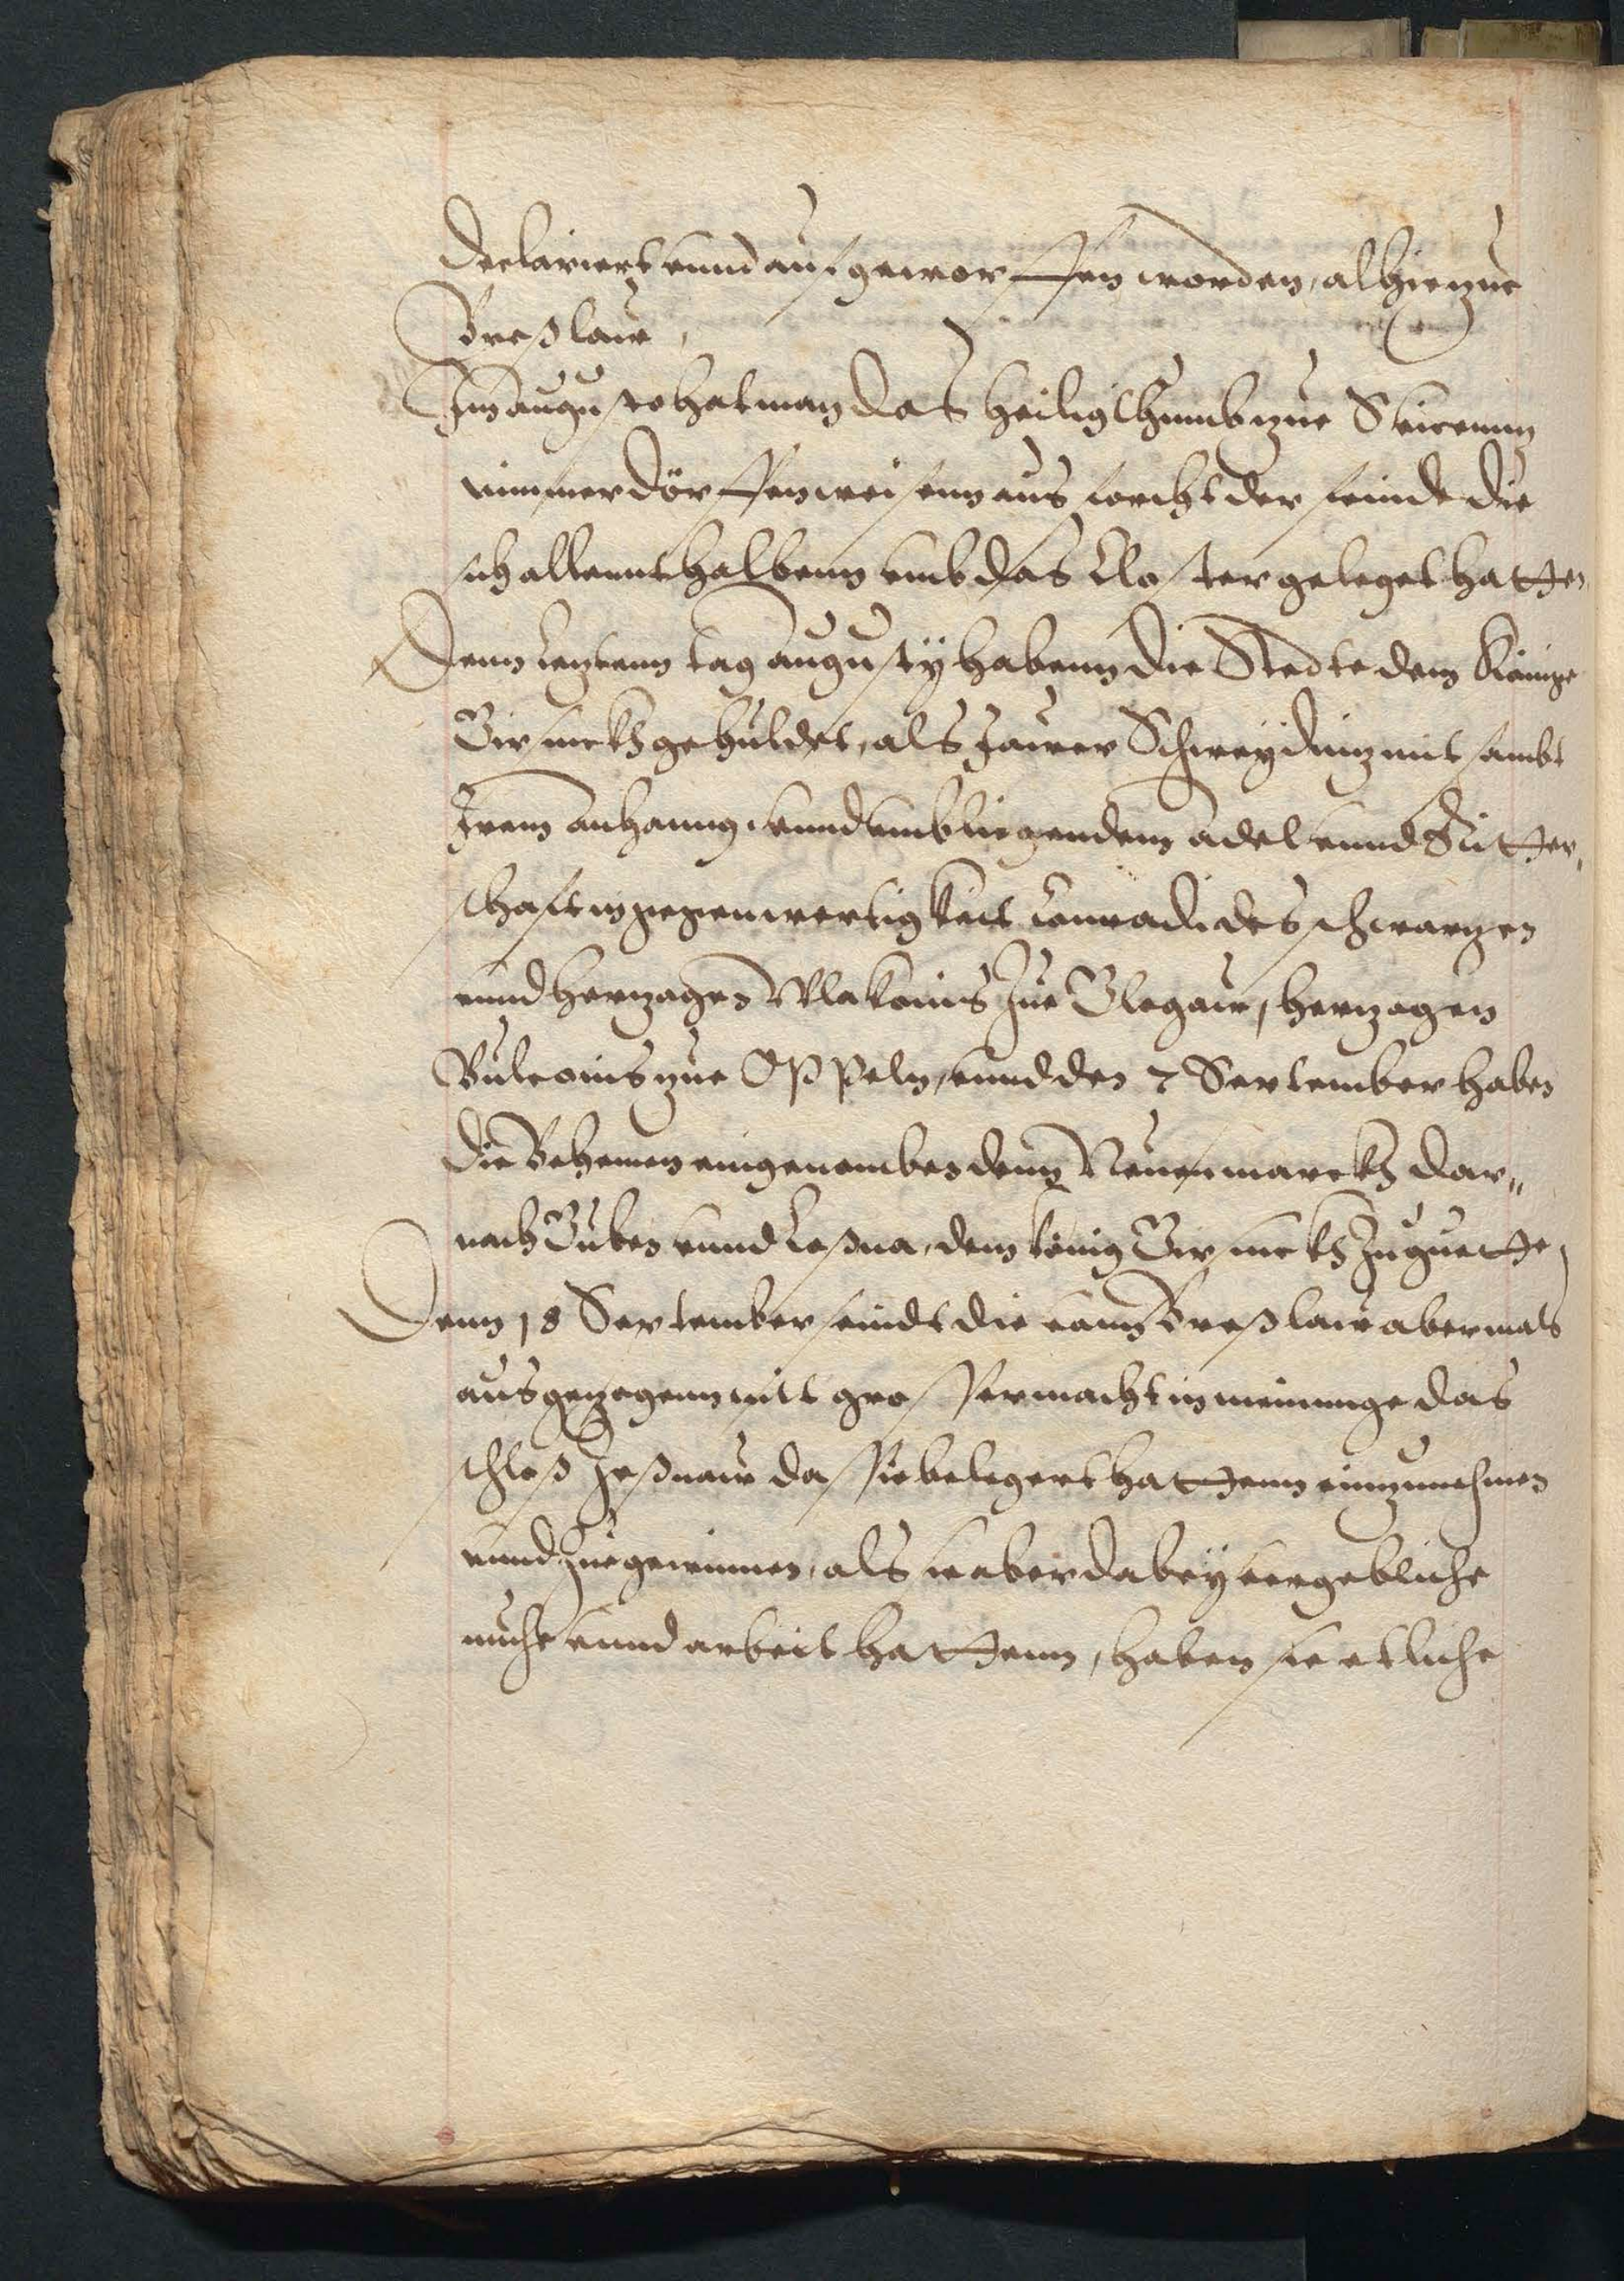 declariert vnnd aufgeworffen worden, alhie zue
Breßlaw,
Im augusto hat man das heiligthumb zue
nimmer dörffen weisenn aus forcht der feinde die
sich allennthalbenn vmb das Closter geleget hatten
Denn letztenn tag augustÿ habenn die Stedte dem Könige
Girsickh gehuldet, als Jawer Schweÿdnitz mit sambt
Irem anhanng, vnnd vmbliegendem adel vnnd Ritter,
schaft in gegenwertigkeit Conradi des schwartzen
vnnd hertzogen Wlakonis Zue Glogaw, hertzogen
zue Oppeln, vnnd den 7 September haben
die Behemen eingenomben denn Neuenmarckh dar„
nach Guben vnnd Leßna, dem könig Girsickh Zu guette,
Denn 18 September seindt die vonn Breßlaw abermals
ausgezogenn mitt grosser macht in meinunge das
schloß Jeßnaw das sie belegert hattenn einzunehmen
vnnd Zue gewinnen, als sie aber dabeÿ vergebliche
muhe vnnd arbeit hattenn, haben sie etliche